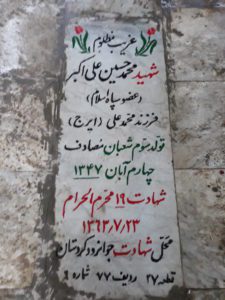 غریب مظلوم
شهید محمد حسین علی اکبر
(عضو سپاه اسلام)
فرزند محمد علی (ایرج)
تولد سوم شعبان مصادف
چهارم آبان ۱۳۴۷
شهادت ۱۹ محرم الحرام
۱۳۶۳٫۷٫۲۳
محل شهادت جوانرود کردستان
قطعه ۲۷ ردیف ۷۷ شماره ۶